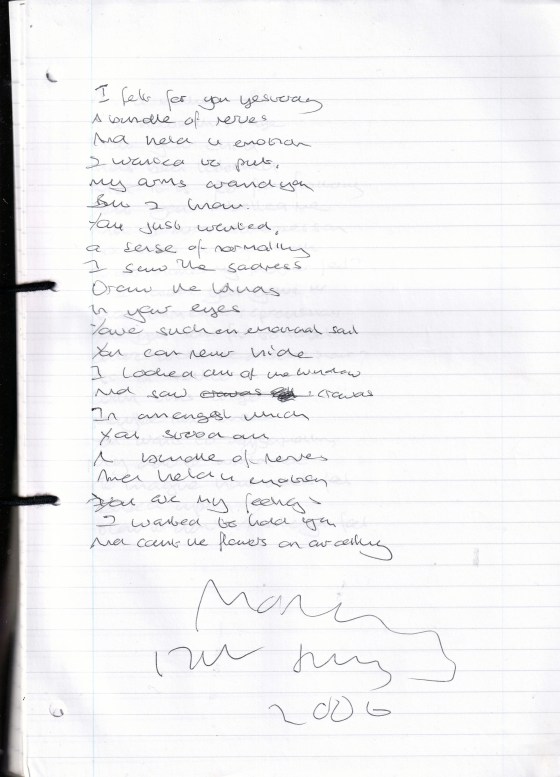 I felt for you yesterday
A bundle of nerves
And held in emotion
I wanted to put,
my arms around you
But I know.
You just wanted,
a sense of normality
I saw the sadness
Draw the blinds
In your eyes
You're such an emotional soul
You can never hide
I looked out of the window
And saw crowds
In amongst which
You stood out
A bundle of nerves
And held in emotion
You are my feelings
I wanted to hold you
And count the flowers on
2006